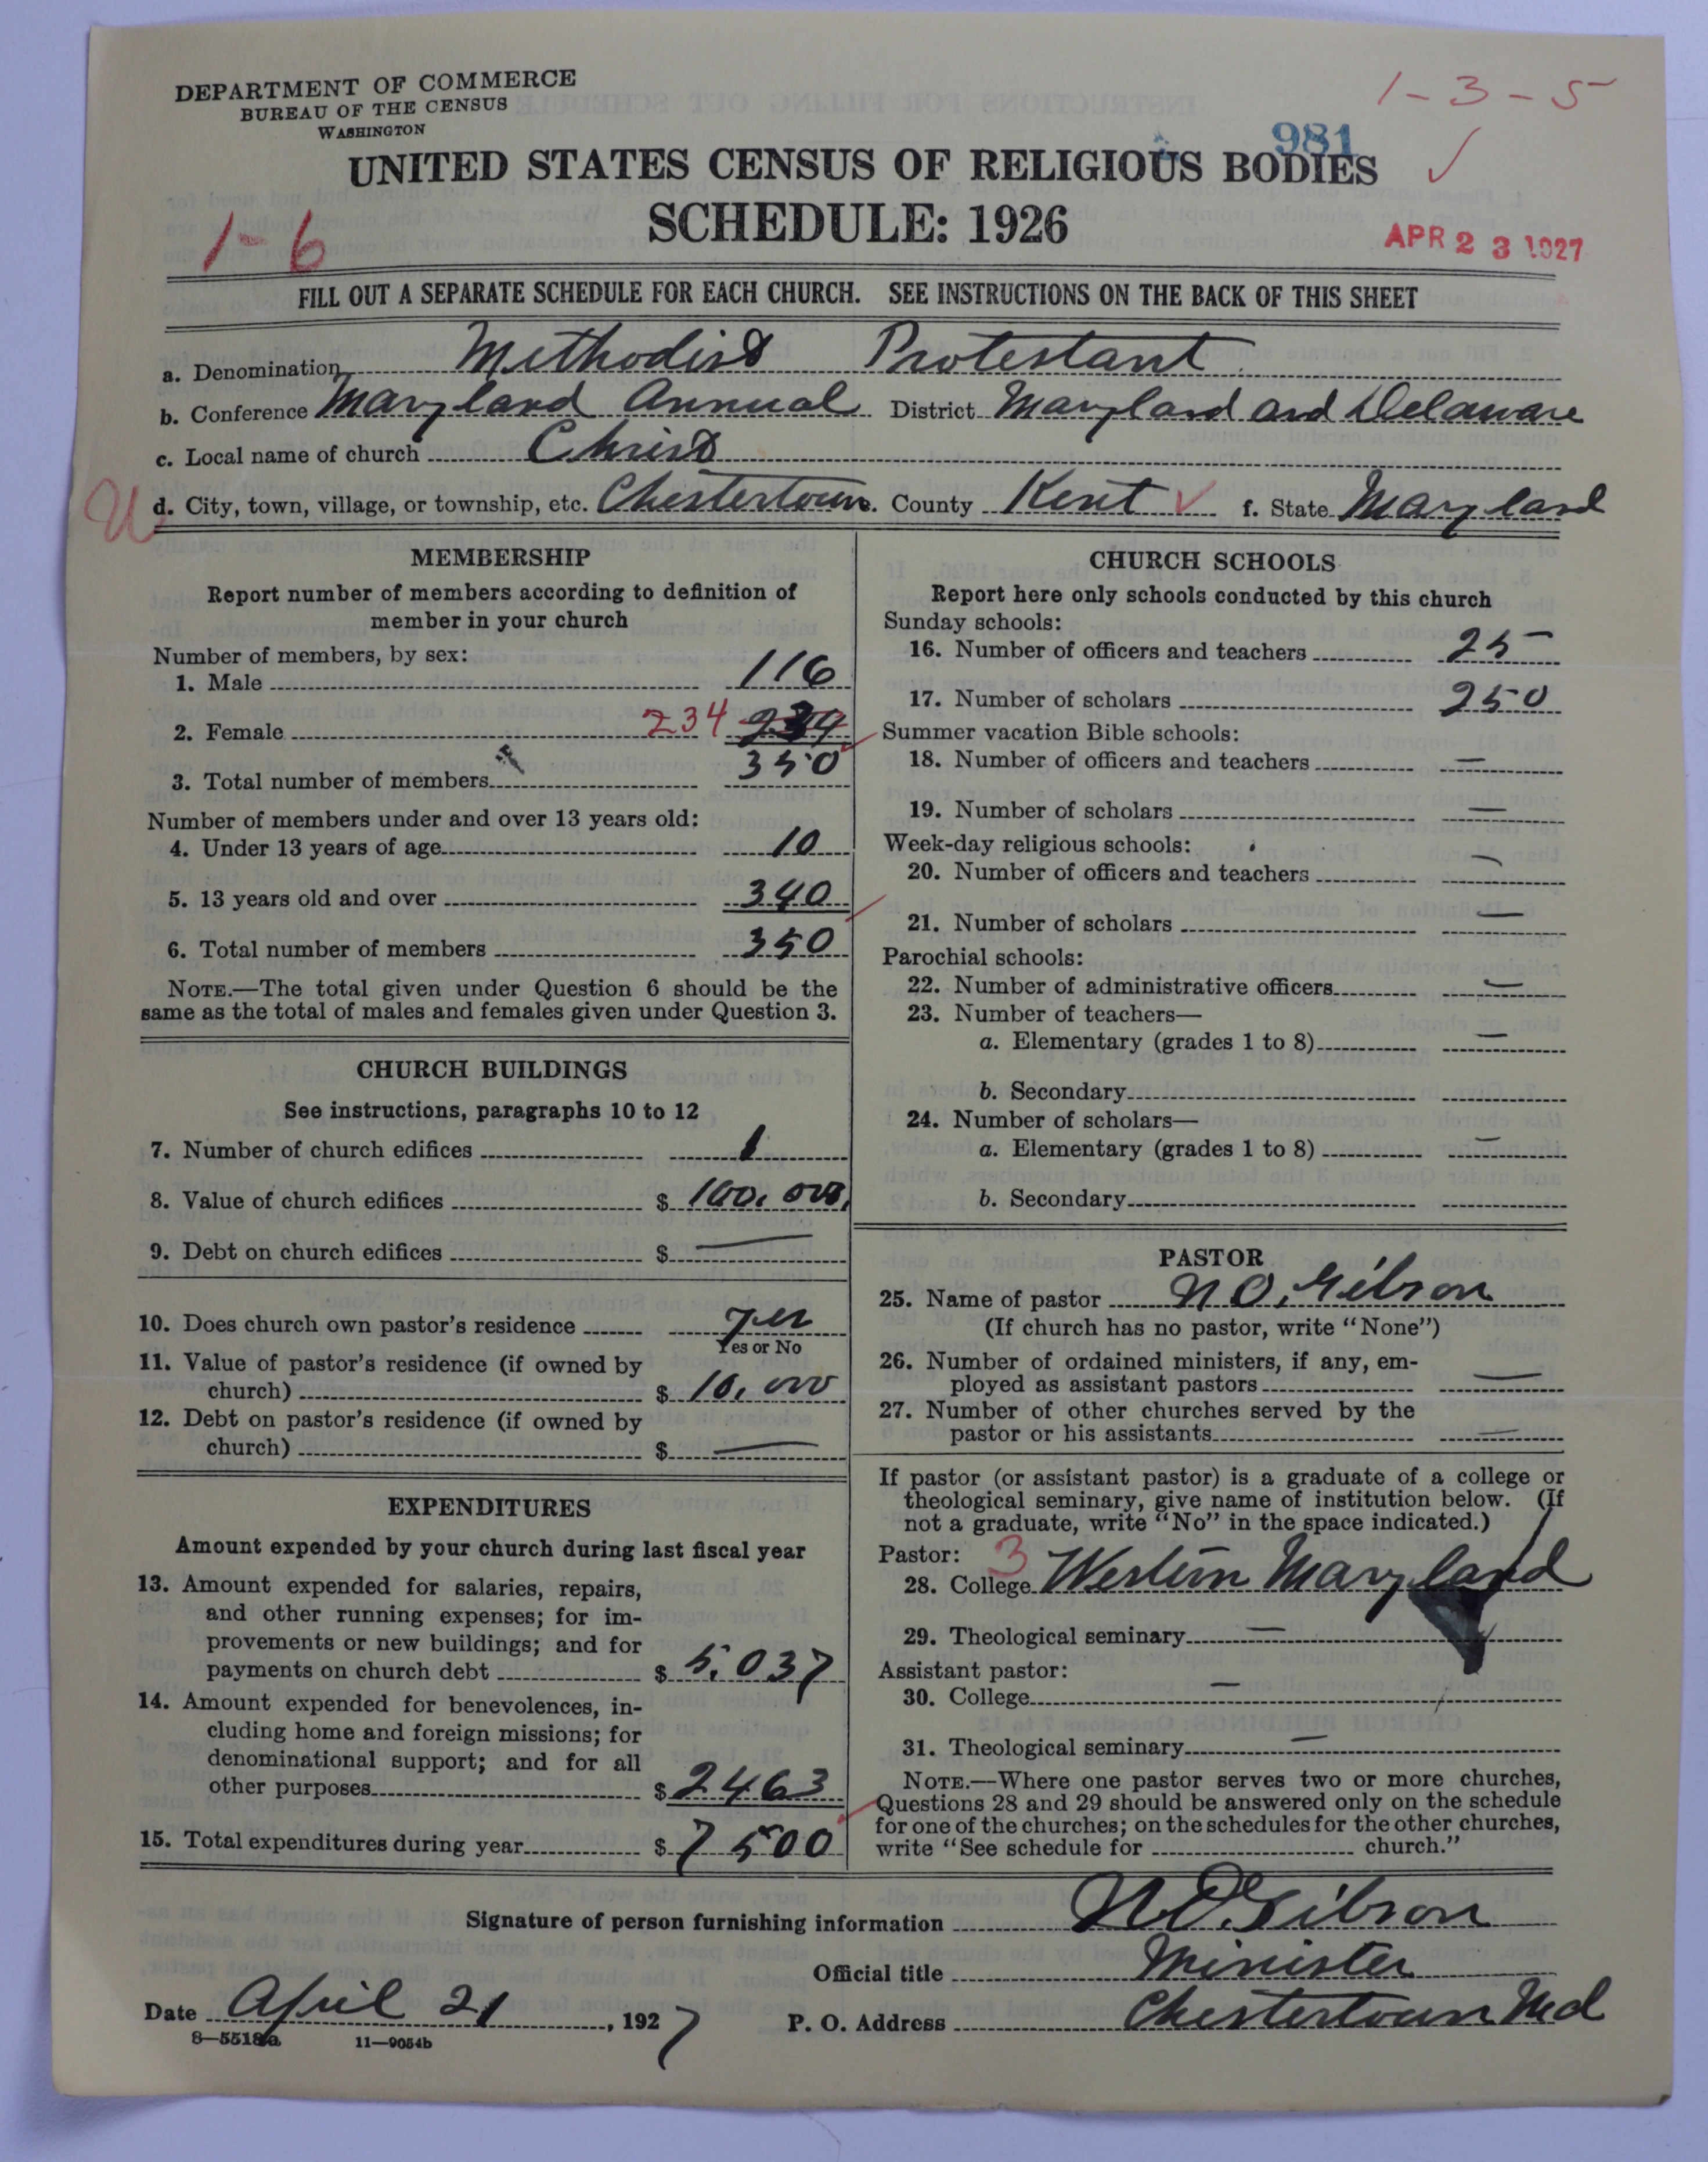 DEPARTMENT OF COMMERCE
BUREAU OF THE CENSUS
WASHINGTON
1-3-5
981
UNITED STATES CENSUS OF RELIGIOUS BODIES
SCHEDULE: 1926
1-6
APR 23 1927
FILL OUT A SEPARATE SCHEDULE FOR EACH CHURCH. SEE INSTRUCTIONS ON THE BACK OF THIS SHEET
a. Denomination Methodist Protestant
b. Conference Maryland Annual District Maryland and Delaware
c. Local name of church Christ
U d. City, town, village, or township, etc. Chestertown e. County Kent ✓ f. State Maryland
MEMBERSHIP
Report number of members according to definition of
member in your church
Number of members, by sex:
1. Male 116
2. Female 234
3. Total number of members 350
Number of members under and over 13 years old:
4. Under 13 years of age 10
5. 13 years old and over 340
6. Total number of members 350
NOTE.—The total given under Question 6 should be the
same as the total of males and females given under Question 3.
CHURCH BUILDINGS
See instructions, paragraphs 10 to 12
7. Number of church edifices 1
8. Value of church edifices $ 100,000
9. Debt on church edifices $ —
10. Does church own pastor's residence yes
Yes or No
11. Value of pastor's residence (if owned by
church) $ 10,000
12. Debt on pastor's residence (if owned by
church) $ —
EXPENDITURES
Amount expended by your church during last fiscal year
13. Amount expended for salaries, repairs,
and other running expenses; for im-
provements or new buildings; and for
payments on church debt $ 5,037
14. Amount expended for benevolences, in-
cluding home and foreign missions; for
denominational support; and for all
other purposes $ 2463
15. Total expenditures during year $ 7500
CHURCH SCHOOLS
Report here only schools conducted by this church
Sunday schools:
16. Number of officers and teachers 25
17. Number of scholars 250
Summer vacation Bible schools:
18. Number of officers and teachers —
19. Number of scholars —
Week-day religious schools:
20. Number of officers and teachers —
21. Number of scholars —
Parochial schools:
22. Number of administrative officers —
23. Number of teachers—
a. Elementary (grades 1 to 8) —
b. Secondary
24. Number of scholars—
a. Elementary (grades 1 to 8) —
b. Secondary
PASTOR
25. Name of pastor N O. Gibson
(If church has no pastor, write "None")
26. Number of ordained ministers, if any, em-
ployed as assistant pastors —
27. Number of other churches served by the
pastor or his assistants —
If pastor (or assistant pastor) is a graduate of a college or
theological seminary, give name of institution below. (If
not a graduate, write "No" in the space indicated.)
Pastor: 3
28. College Western Maryland
29. Theological seminary —
Assistant pastor:
30. College —
31. Theological seminary —
NOTE.—Where one pastor serves two or more churches,
Questions 28 and 29 should be answered only on the schedule
for one of the churches; on the schedules for the other churches,
write "See schedule for church."
Signature of person furnishing information N. O. Gibson
Official title Minister
Date April 21, 1927 P. O. Address Chestertown Md
8—5518a 11—9054b